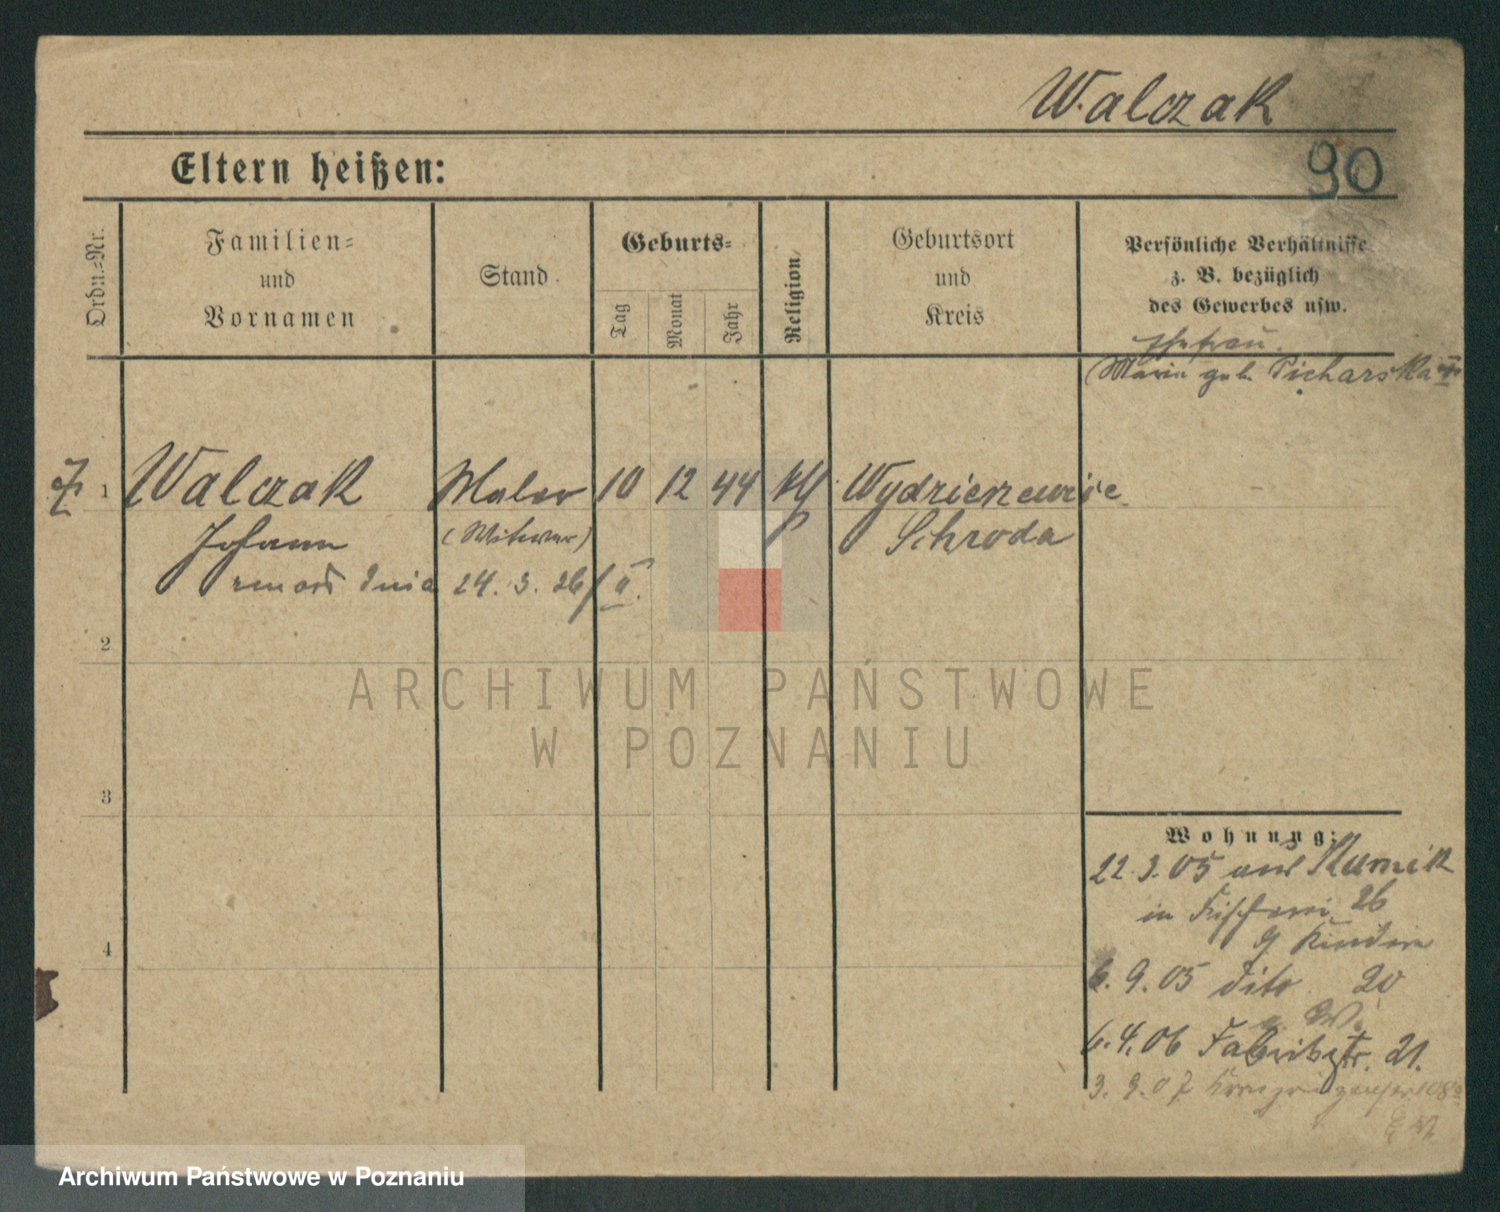 Walczak
90
Eltern heißen:
Ordn.-Nr.
Familien-
und
Vornamen
Stand
Geburts-
Tag
Monat
Jahr
Religion
Geburtsort
und
Kreis
Persönliche Verhältnisse
z. B. bezüglich
des Gewerbes usw.
Ehefrau.
Maria geb. Picharska
1
Walczak
Maler
10 12 44
kth
Wydzierzewice
Johann
(Witwer)
Schroda
zmarł dnia 24. 3. 26/II.
2
ARCHIWUM PAŃSTWOWE
W POZNANIU
3
Wohnung:
22. 3. 05 aus Kurnik
in Fischerei 26
4
6. 9. 05 dito 20
6. 4. 06 Fabrikstr. 21.
3. 9. 07
Archiwum Państwowe w Poznaniu